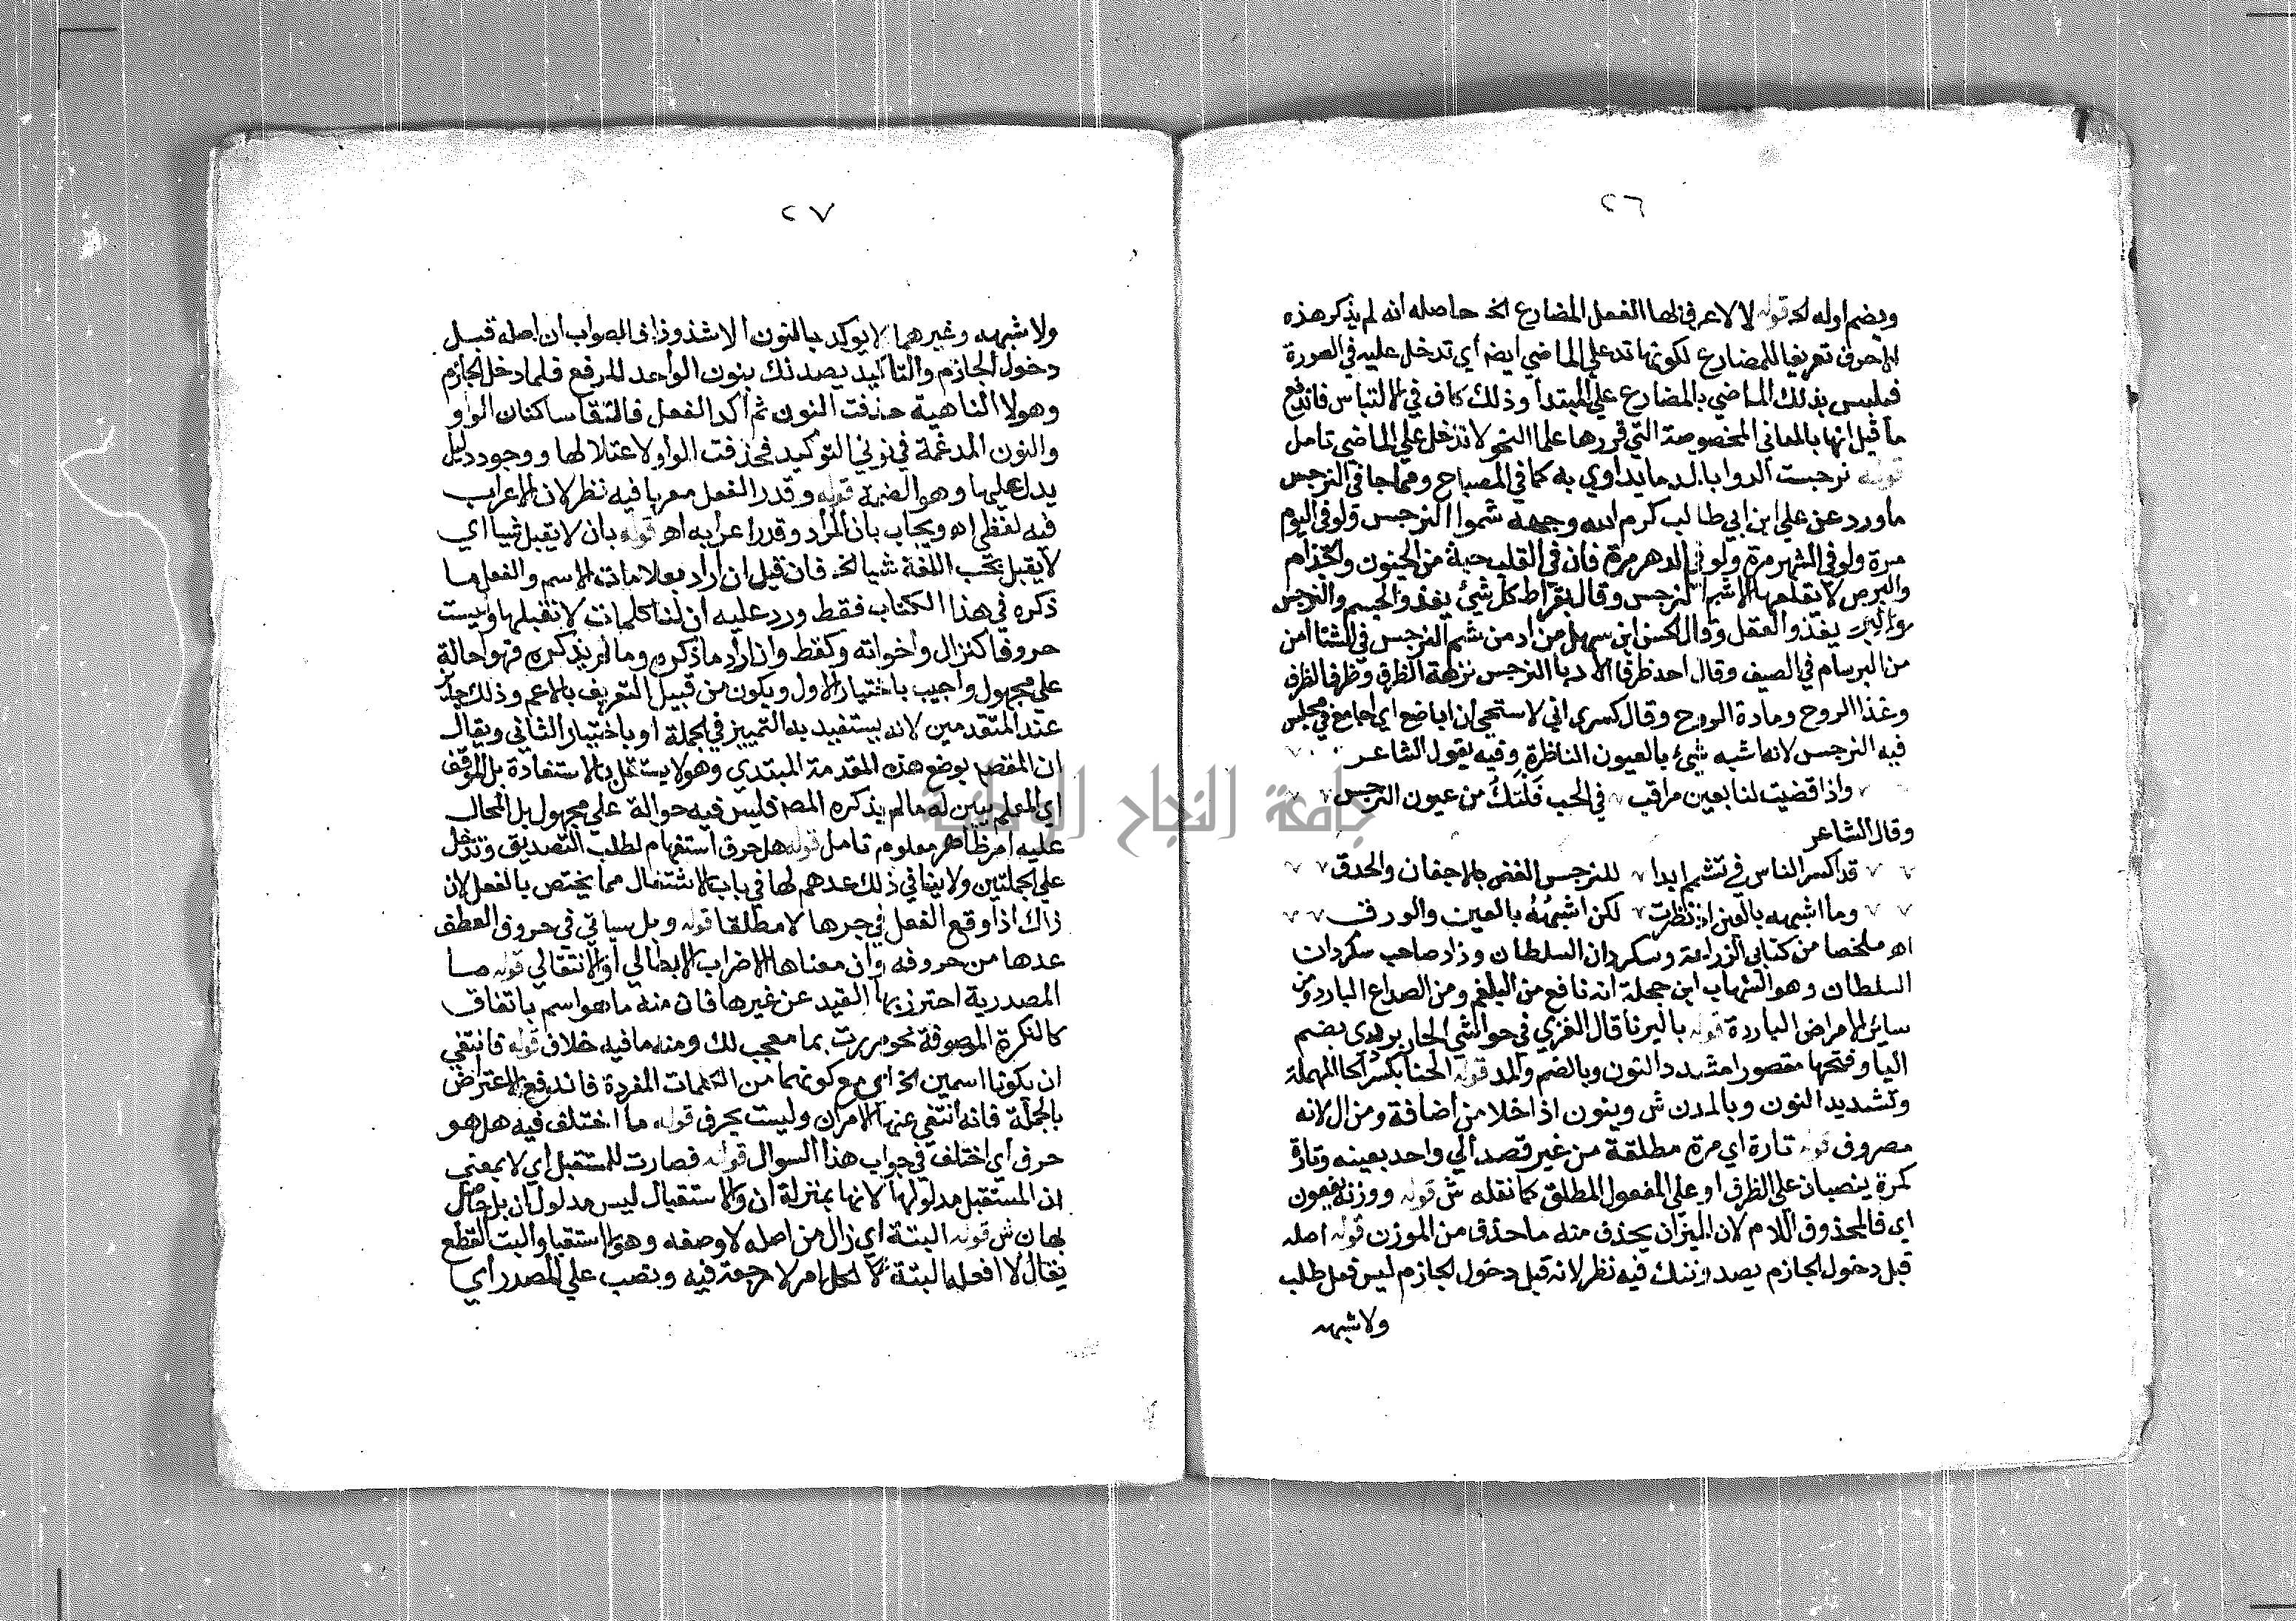 ٢٦
ويضم اوله الخ قوله لا لاعرف بها الفعل المضارع الخ حاصله انه لم يذكر هذه
الاحرف تعريفا للمضارع لكونها تدخل علي الماضي ايضا أي تدخل عليه في الصورة
فيلبس بذلك الماضي بالمضارع علي المبتدأ وذلك كاف في الالتباس فاندفع
ما قيل انها بالمعاني المخصوصة التي قررها علما النحو لا تدخل علي الماضي تامل
قوله نرجست الدوا بالد ما يداوي به كما في المصباح ومما جا في النرجس
ما ورد عن علي ابن ابي طالب كرم الله وجهه شموا النرجس ولو في اليوم
مرة ولو في الشهر مرة ولو في الدهر مرة فان في القلب حبة من الجنون والجذام
والبرص لا يقلعها الا شم النرجس وقال بقراط كل شيء يغذو الجسم والنرجس
يغذو العقل وقال الحسن ابن سهل من ادمن شم النرجس في الشتا امن
من البرسام في الصيف وقال احد ظرفا الادبا النرجس نزهة الطرف وظرف الظرف
وغذا الروح ومادة الروح وقال كسري اني لاستحي ان اباضع اي اجامع في مجلس
فيه النرجس لانه اشبه شيء بالعيون الناظرة وفيه يقول الشاعر
واذا قضيت لنا بعين مراقب في الحب فلتك من عيون النرجس
وقال الشاعر
قد اكسر الناس في تشبيه ابدا للنرجس الغض بالاجفان والحدق
وما اشبهه بالعين اذ نظرت لكن اشبهه بالعين والورق
اه ملخصا من كتابي الزراعة وسكردان السلطان وزاد صاحب سكردان
السلطان وهو الشهاب ابن حجلة انه نافع من البلغم ومن الصداع البارد ومن
سائر الامراض الباردة قوله باليرنا قال الغزي في حواشي الجاربردي بضم
اليا وفتحها مقصورا مشدد النون وبالضم والمد قوله الحنا بكسر الحا المهملة
وتشديد النون وبالمد ن ش وينون اذا خلا من اضافة ومن ال لانه
مصروف قوله تارة اي مرة مطلقة من غير قصد الي واحد بعينه وتارة
كمرة ينصبان علي الظرف او علي المفعول المطلق كما نقله ش قوله ووزنه يفعون
اي فالمحذوف اللام لان الميزان يحذف منه ما حذف من الموزن قوله اصله
قبل دخول الجازم يصدوننك فيه نظر لانه قبل دخول الجازم ليس فعل طلب
ولا شبهه
٢٧
ولا شبهه وغيرهما لا يوكد بالنون الا شذوذا فالصواب ان اصله قبل
دخول الجازم والتاكيد يصدنك بنون الواحد للرفع فلما دخل الجازم
وهو لا الناهية حذفت النون ثم أكد الفعل فالتقا ساكنان الواو
والنون المدغمة في نوني التوكيد فحذفت الواو لاعتلالها ووجود دليل
يدل عليها وهو الضمة قوله وقدر الفعل معربا فيه نظر لان الاعراب
فيه لفظي اه ويجاب بان المراد وقدر اعرابه اه قوله بان لا يقبل شيا اي
لا يقبل بحسب اللغة شيا الخ فان قيل ان أراد بعلامات الاسم والفعل ما
ذكره في هذا الكتاب فقط ورد عليه ان لنا كلمات لا تقبلها وليست
حروفا كنزال واخواته وكقط وان اراد ما ذكره وما لم يذكره فهو احالة
علي مجهول واجيب باختيار الاول ويكون من قبيل التعريف بالاعم وذلك جائز
عند المتقدمين لانه يستفيد به التمييز في الجملة او باختيار الثاني ويقال
ان المقصم بوضع هذه المقدمة المبتدي وهو لا يستقل بالاستفادة بل الموقف
اي المعلم يبين له ما لم يذكره المصم فليس فيه حوالة علي مجهول بل المحال
عليه امر ظاهر معلوم تامل قوله هل حرف استفهام لطلب التصديق وتدخل
علي الجملتين ولا ينافي ذلك عدهم لها في باب الاشتغال مما يختص بالفعل لان
ذاك اذا وقع الفعل في جرها لا مطلقا قوله وبل سياتي في حروف العطف
عدها من حروفه وان معناها الاضراب الابطالي او الانتقالي قوله ما
المصدرية احترز بهذا القيد عن غيرها فان منه ما هو اسم باتفاق
كالنكرة الموصوفة نحو مررت بما معجب لك ومنه ما فيه خلاف قوله فانتفي
ان يكونا اسمين الخ اي مع كونهما من الكلمات المفردة فاندفع الاعتراض
بالجملة فانه انتفي عنها الامران وليست بحرف قوله ما اختلف فيه هل هو
حرف اي اختلف في جواب هذا السوال قوله فصارت للمستقبل اي لا بمعني
ان المستقبل مدلولها لانها بمنزلة ان والاستقبال ليس مدلول ان بل حاصل
بها ن ش قوله البتة اي زال من اصله لا وصفه وهو الاستقبا والبت القطع
يقال لا افعله البتة لكل امر لا رجعة فيه ونصب علي المصدر أي
جامعة النجاح الوطنية